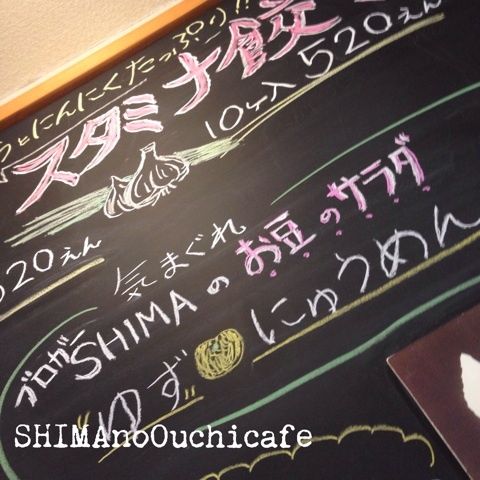 うとにんにくたっぷり!!
スタミナ餃
10ケ入 520えん
520えん
気まぐれ
ブロガーSHIMAのお豆のサラダ
"ゆず"にゅうめん
SHIMAnoOuchicafe